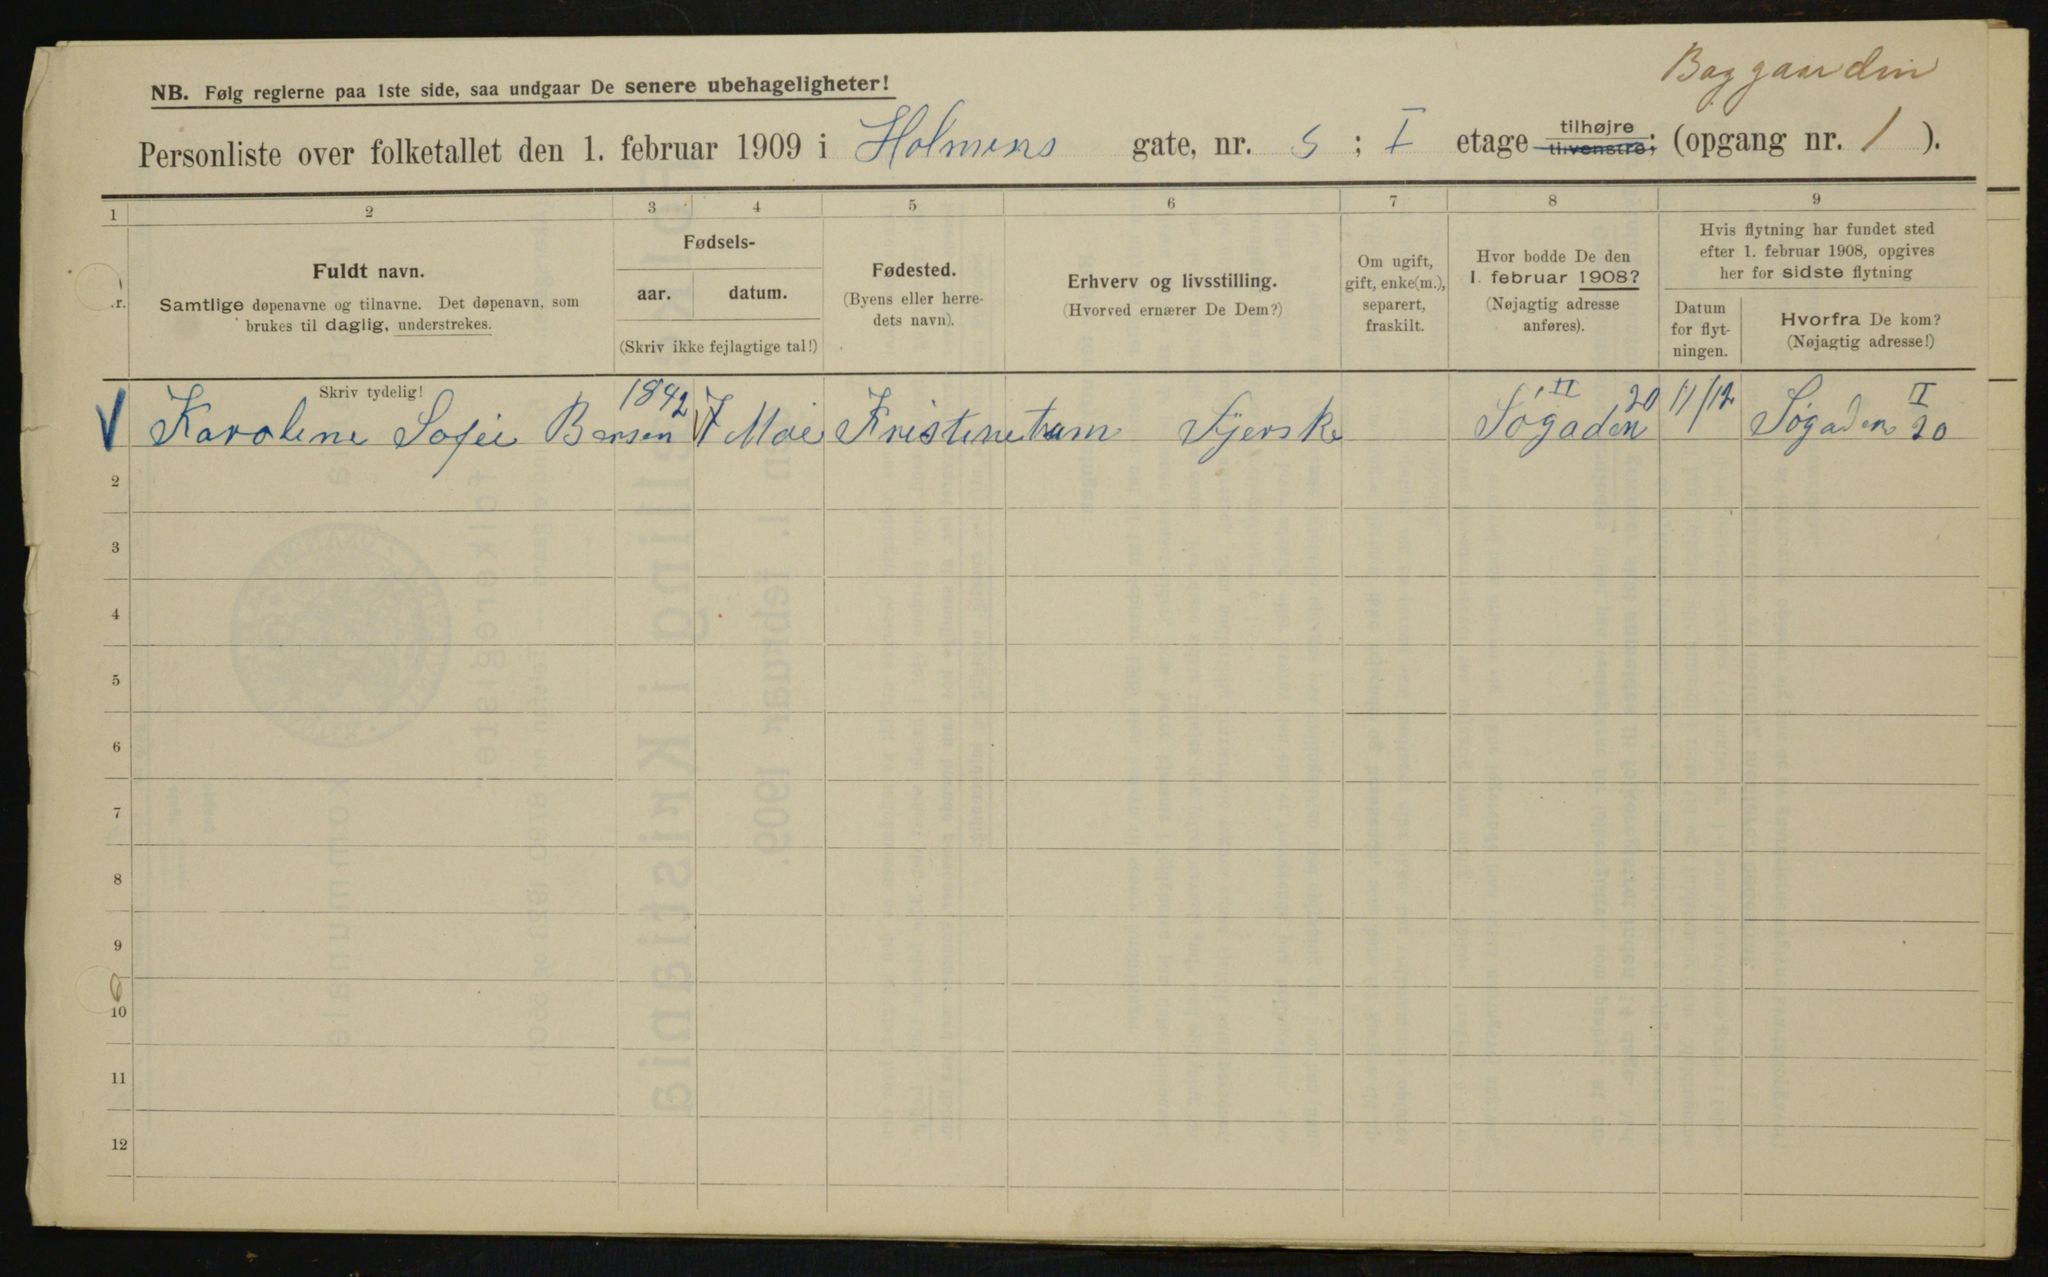 Baggaardin
NB. Følg reglerne paa 1ste side, saa undgaar De senere ubehageligheter!
Personliste over folketallet den 1. februar 1909 i Holmens gate, nr. 5 ; I etage tilhøjre tilvenstre; (opgang nr. 1 ).
1 2 3 4 5 6 7 8 9
Nr.
Fuldt navn.
Samtlige døpenavne og tilnavne. Det døpenavn, som
brukes til daglig, understrekes.
Fødsels-
aar. datum.
(Skriv ikke fejlagtige tal!)
Fødested.
(Byens eller herre-
dets navn).
Erhverv og livsstilling.
(Hvorved ernærer De Dem?)
Om ugift,
gift, enke(m.),
separert,
fraskilt.
Hvor bodde De den
1. februar 1908?
(Nøjagtig adresse
anføres).
Hvis flytning har fundet sted
efter 1. februar 1908, opgives
her for sidste flytning
Datum
for flyt-
ningen.
Hvorfra De kom?
(Nøjagtig adresse!)
Skriv tydelig!
Karoline Sofie 1842 7 Mai Sjerske Søgaden II 20 11/12 Søgaden II 20
2
3
4
5
6
7
8
9
10
11
12